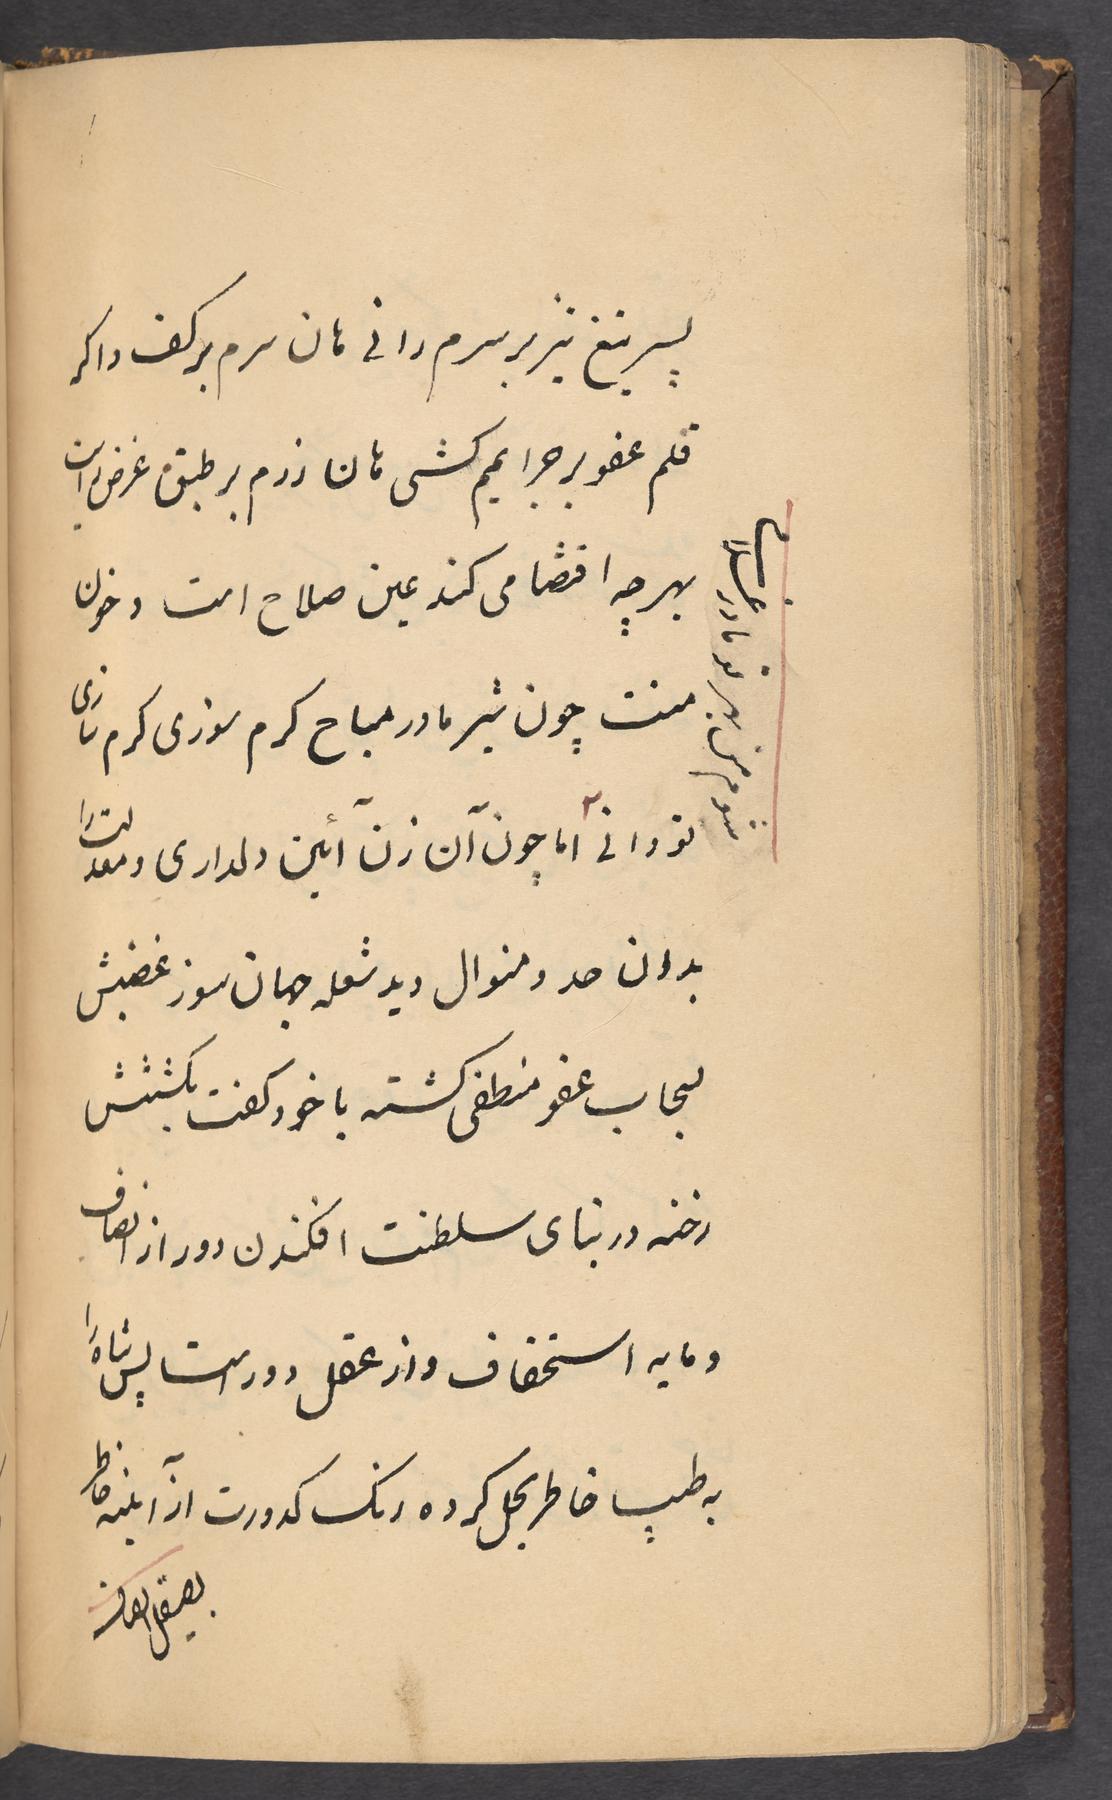 پس تیغ تیز بر سرم رانی هان سرم بر کف و اگر
قلم عفو بر جرایمم کشی هان زرم بر طبق غرض رایت
بهر چه اقتضا می کند عین صلاح است و خون
منت چون شیر مادر مباح کرم سوزی کرم سازی
تو دانی اما چون آن زن آئین دلداری و معدلت را
بدان حد و منوال دید شعله جهان سوز غضبش
بسحاب عفو منطفی کشته با خود کفت بکشتنش
رخنه در بنای سلطنت افکندن دور از انصاف
و مایه استخفاف و از عقل دور است پس شاه را
به طیب خاطر بحل کرده زنک کدورت از آینه خاطر
بصیقل